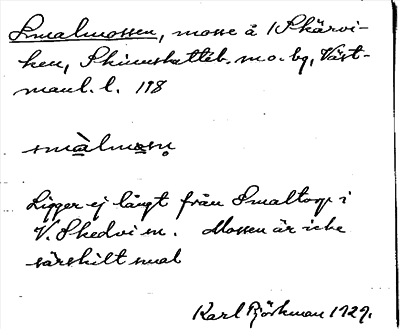 Smalmossen, mosse å 1 Skärvi-
ken, Skinnskatteb. sn o. bg, Väst-
manl. l. 118
smàlmosn̥
Ligger ej långt från Smaltorp i
V. Skedvi sn. Mossen är icke
särskilt smal
Karl Björkman 1929.